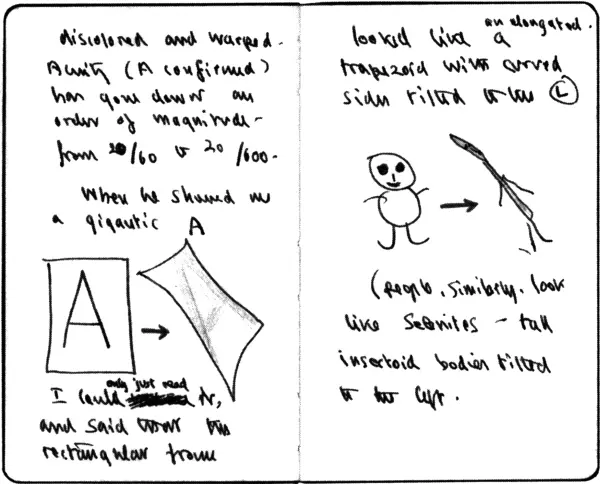 discolored and warped.
Acuity (A confirmed)
has gone down an
order of magnitude -
from 20/60 to 20/600.
When he showed me
a gigantic A
A
I could only just read it,
and said that the
rectangular frame
looked like an elongated
trapezoid with curved
sides tilted to the L
(People, similarly, look
like Selenites - tall
insectoid bodies tilted
to the left.